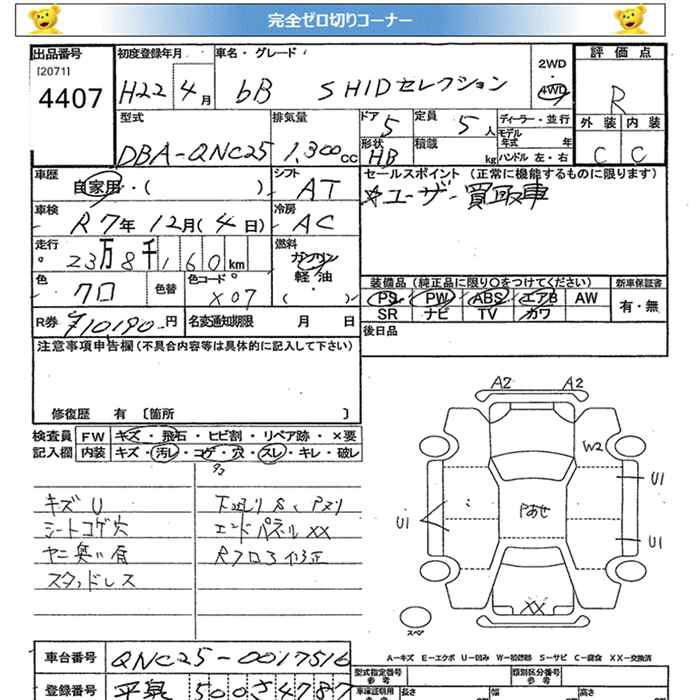 完全ゼロ切りコーナー
出品番号
[2071]
4407
初度登録年月
H22 4月
車名・グレード
bB SHIDセレクション
2WD
・
4WD
評価点
R
外装 内装
C C
型式
DBA-QNC25
排気量
1,300cc
ドア 5
定員 5人
形状 HB
積載 kg
ディーラー・並行
モデル年式 年
ハンドル 左・右
車歴
自家用・( )
シフト
AT
車検
R7年12月(4日)
冷房
AC
走行
23万8千160km
燃料
ガソリン
軽油
( )
色
クロ
色替
色コードNo
X07
R券 ¥10190-円
名変通知期限 月 日
セールスポイント (正常に機能するものに限ります)
☆ユーザー買取車
装備品 (純正品に限り○をつけてください)
新車保証書
PS PW ABS エアB AW
SR ナビ TV カワ
有・無
後日品
注意事項申告欄 (不具合内容等は具体的に記入して下さい)
修復歴 有 〔箇所 〕
検査員記入欄
FW キズ・飛石・ヒビ割・リペア跡・×要
内装 キズ・汚レ・コゲ・穴・スレ・キレ・破レ
キズU
シートコゲ穴
ヤニ臭い有
スタッドレス
エンドパネルXX
Rフロア修正
A2 A2
W2
U1
U1
U1
Pあせ
XX
スペア
A-キズ E-エクボ U-凹み W-補修跡 S-サビ C-腐食 XX-交換済
車台番号
QNC25-0017516
登録番号
型式指定番号
参考
類別区分番号
参考
長さ
幅
高さ